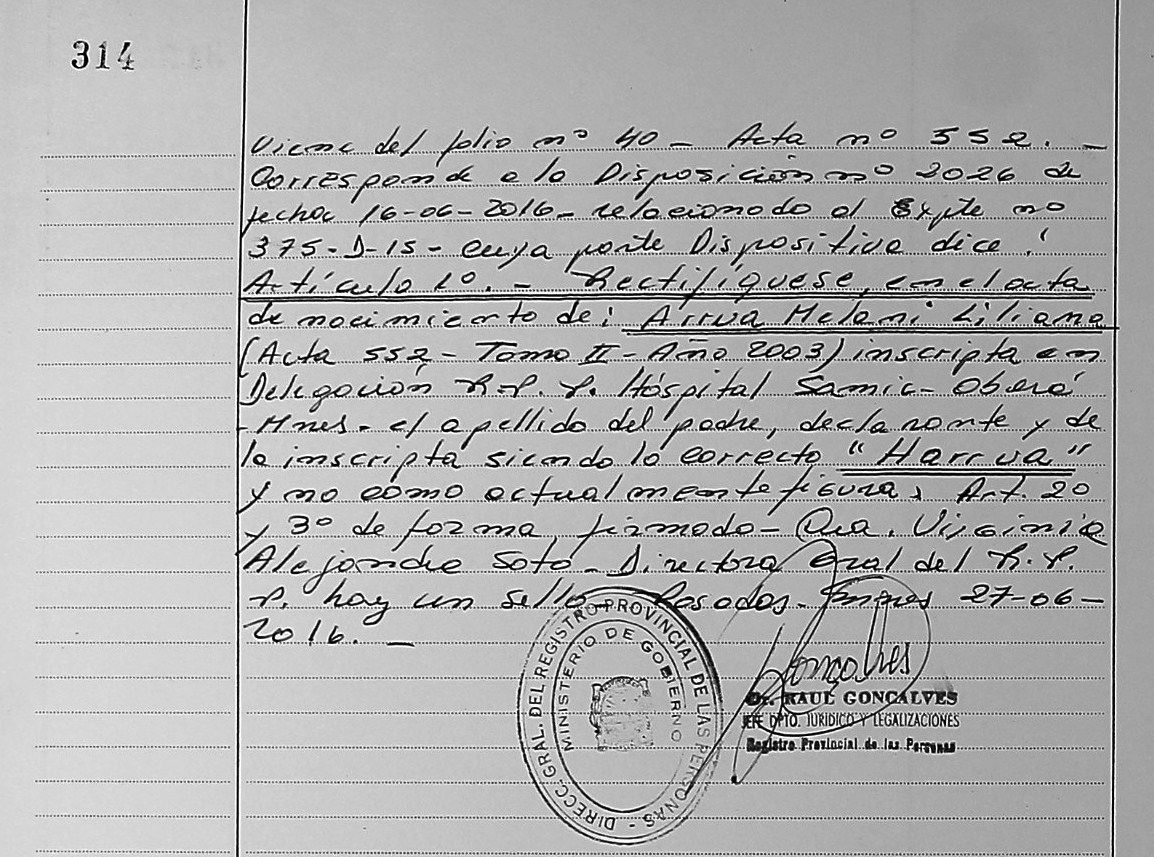 314
Viene del folio nº 40 - Acta nº 552. -
Corresponde a la Disposición nº 2026 de
fecha 16-06-2016 - relacionado al Expte nº
375-D-15 - cuya parte Dispositiva dice:
Artículo 1º. - Rectifíquese, en el acta
de nacimiento de: Arrua Melani Liliana
(Acta 552 - Tomo II - Año 2003) inscripta en
Delegación R.P.P. Hospital Samic - Oberá
- Mnes. - el apellido del padre, declarante y de
la inscripta siendo lo correcto "Harrua"
y no como actualmente figura, Art. 2º
y 3º de forma, firmado - Dra. Virginia
Alejandra Soto - Directora Gral del R.P.
P. hay un sello - Posadas - Mnes 27-06-
2016. -
DIRECC. GRAL. DEL REGISTRO PROVINCIAL DE LAS PERSONAS -
MINISTERIO DE GOBIERNO
Gonçalves
Dr. RAUL GONCALVES
JEFE DPTO. JURIDICO Y LEGALIZACIONES
Registro Provincial de las Personas